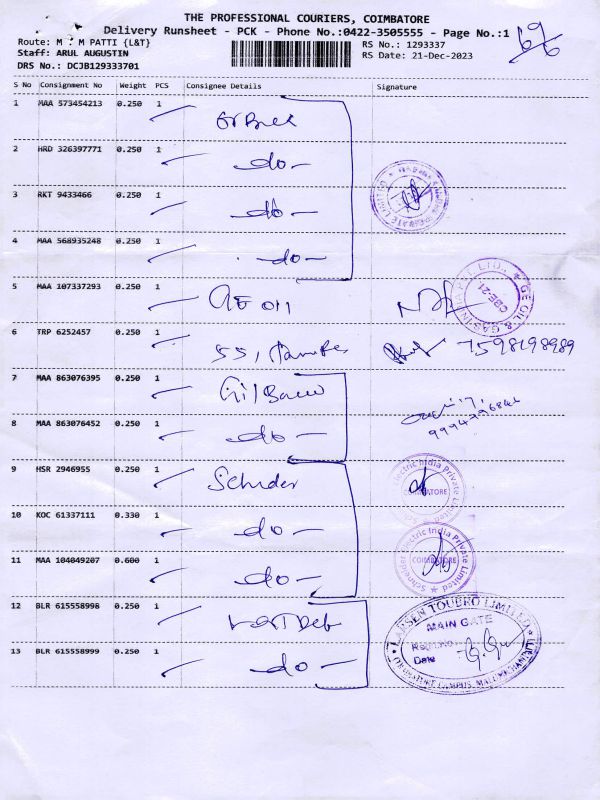 THE PROFESSIONAL COURIERS, COIMBATORE
Delivery Runsheet - PCK - Phone No.:0422-3505555 - Page No.:1
Route: M : M PATTI {L&T}
RS No.: 1293337
Staff: ARUL AUGUSTIN
RS Date: 21-Dec-2023
DRS No.: DCJB129333701
S No Consignment No Weight PCS Consignee Details Signature
1 MAA 573454213 0.250 1
2 HRD 326397771 0.250 1 -do-
3 RKT 9433466 0.250 1 -do-
4 MAA 568935248 0.250 1 -do-
5 MAA 107337293 0.250 1 GE Oil
GE OIL & GAS INDIA PVT. LTD. CBE-21
6 TRP 6252457 0.250 1 7598198989
7 MAA 863076395 0.250 1
8 MAA 863076452 0.250 1 -do-
9 HSR 2946955 0.250 1
Electric India Private Limited COIMBATORE
10 KOC 61337111 0.330 1 -do-
11 MAA 104049207 0.600 1 -do-
Schneider Electric India Private Limited COIMBATORE
12 BLR 615558998 0.250 1
LARSEN TOUBRO LIMITED
MAIN GATE
Date
13 BLR 615558999 0.250 1 -do-